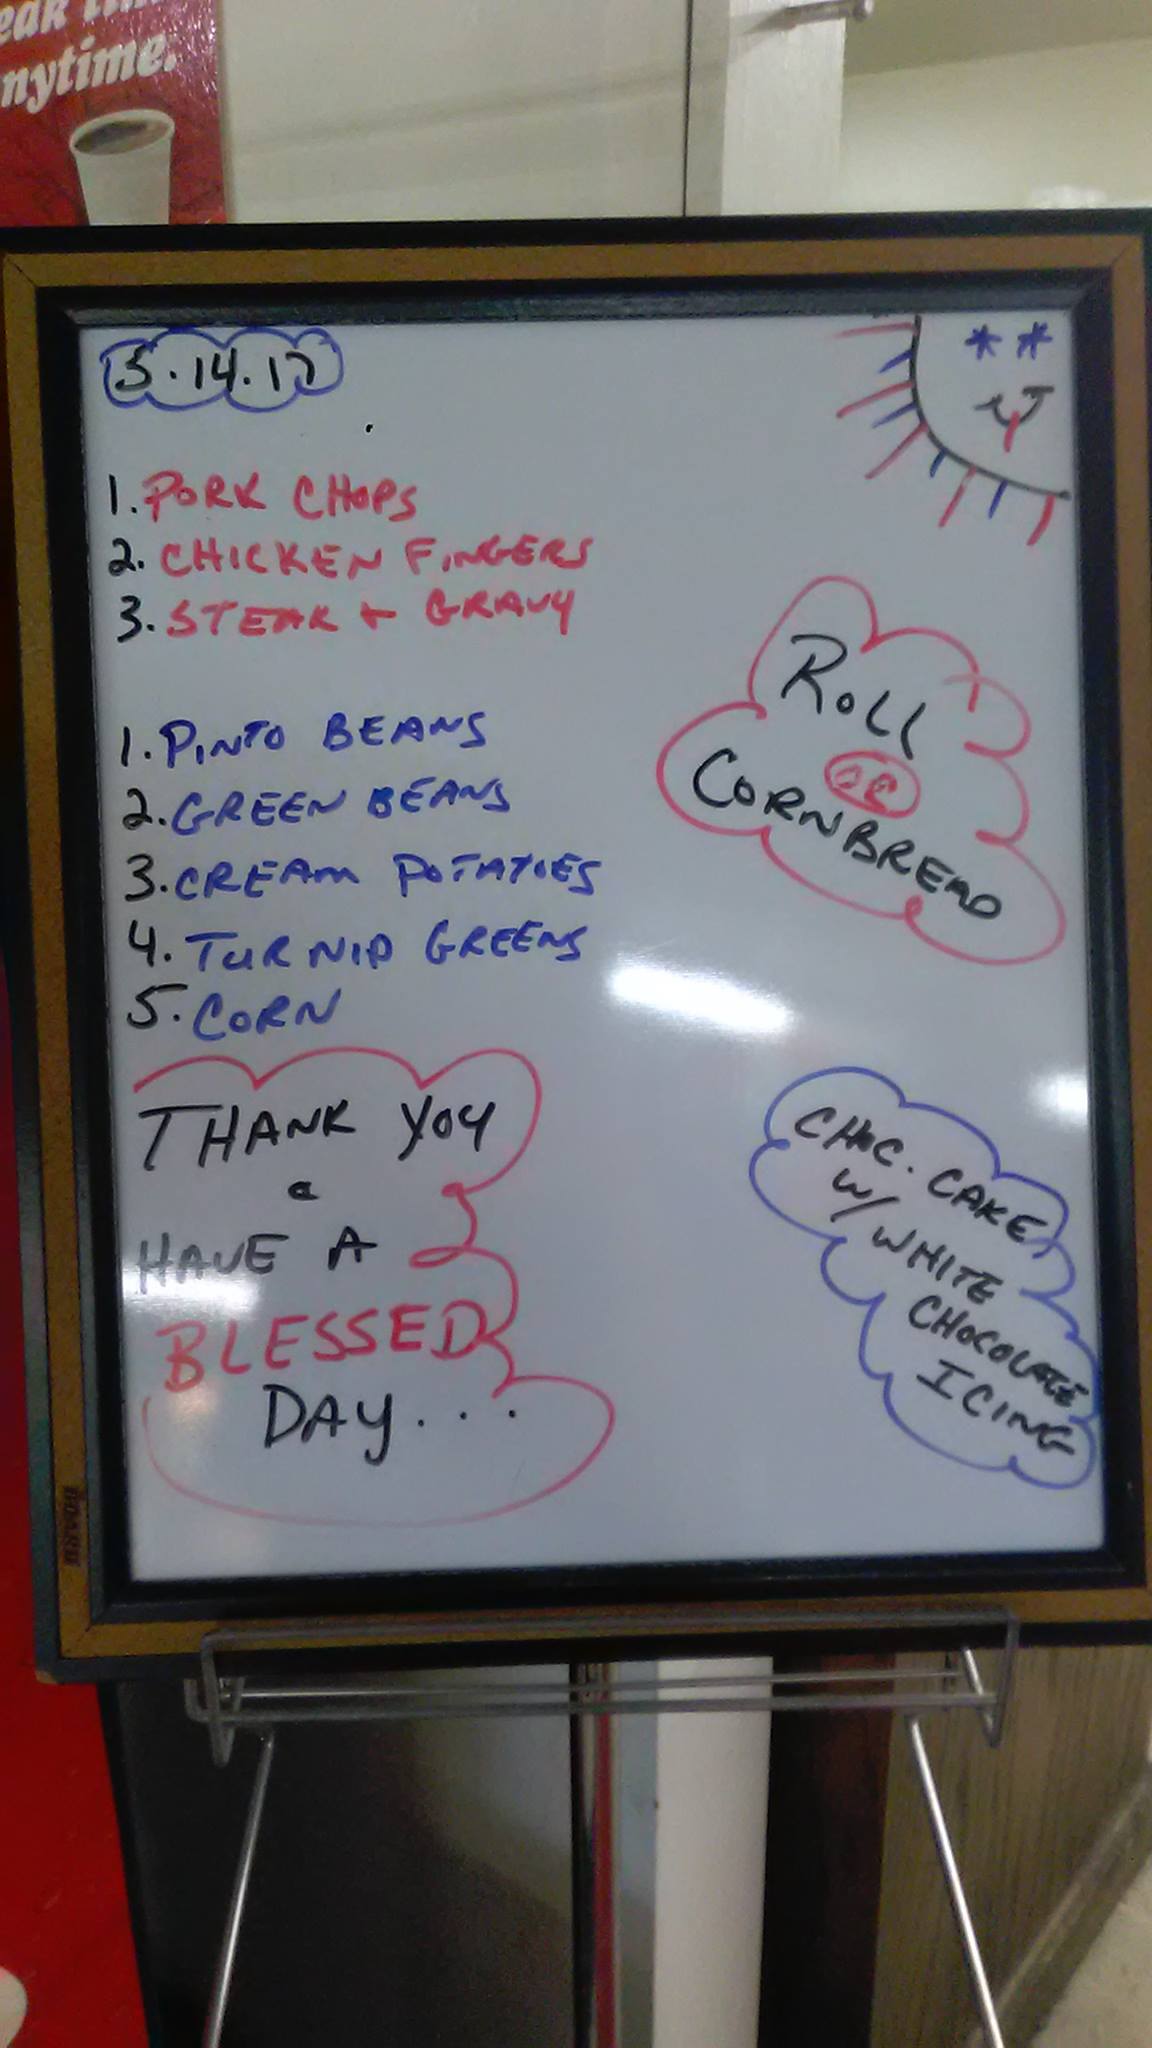 eak time
nytime.
5.14.17
1. PORK CHOPS
2. CHICKEN FINGERS
3. STEAK + GRAVY
1. PINTO BEANS
2. GREEN BEANS
3. CREAM POTATOES
4. TURNIP GREENS
5. CORN
ROLL
OR
CORNBREAD
THANK YOU
&
HAVE A
BLESSED
DAY...
CHOC. CAKE
W/ WHITE
CHOCOLATE
ICING
BOARD